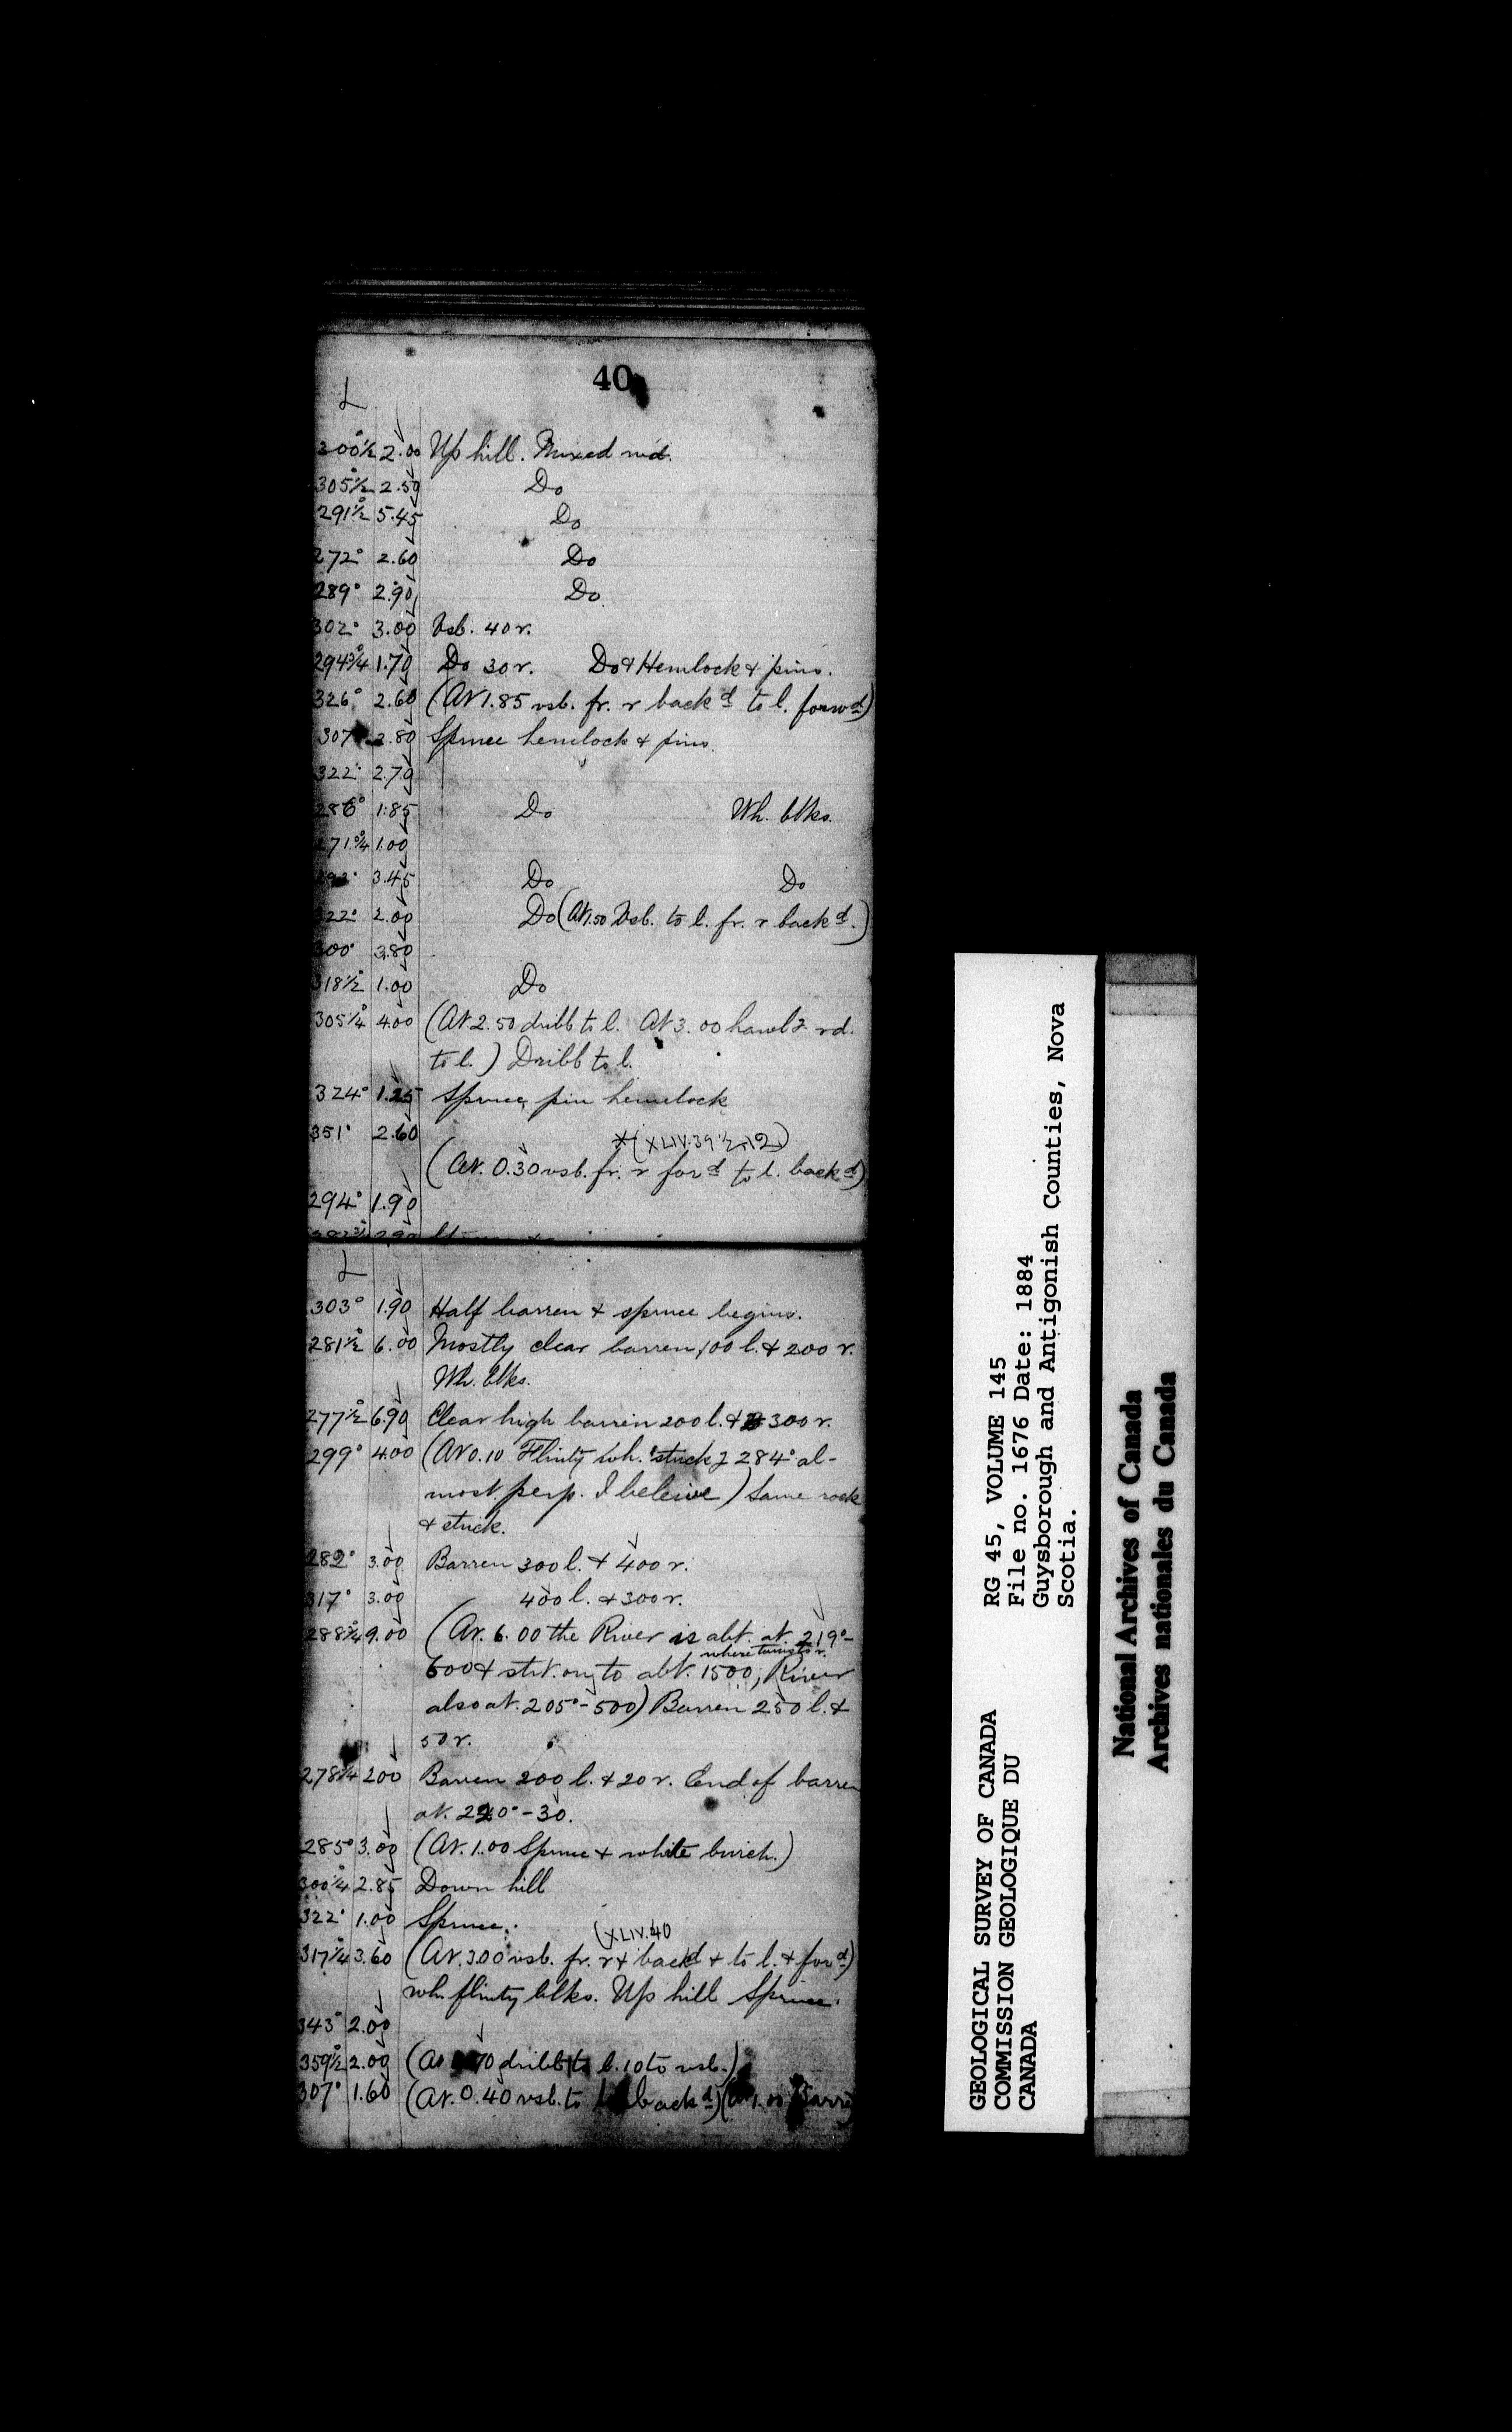 40
L
300°½ 2.00 Up hill. Mixed wd.
305°½ 2.50 Do
291°½ 5.45 Do
272° 2.60 Do
289° 2.90 Do
302° 3.00 Vsb. 40 r.
294°¾ 1.70 Do 30 r. Do & Hemlock & pins.
326° 2.60 (At 1.85 vsb. fr. r back d to l. forw d)
307 2.80 Spruce hemlock & pins.
322° 2.70
286° 1.85 Do Wh. blks.
271°¼ 1.00
292° 3.45 Do Do
322° 2.00 Do (At 1.50 Vsb. to l. fr. r back d.)
300° 3.80
318°½ 1.00 Do
305°¼ 4.00 (At 2.50 dribb to l. At 3.00 haul g rd.
to l.) Dribb to l.
324° 1.25 Spruce, pin hemlock
351° 2.60
*(XLIV.39½.12)
(At. 0.30 vsb. fr. r for d to l. back d)
294° 1.90
L
303° 1.90 Half barren & spruce begins.
281°½ 6.00 Mostly clear barren 100 l. & 200 r.
Wh. blks.
277°½ 6.90 Clear high barren 200 l. & 300 r.
299° 4.00 (At 0.10 Flinty wh. stuck 284° al-
most perp. I beleive) Same rock
& stuck.
282° 3.00 Barren 300 l. & 400 r.
317° 3.00 400 l. & 300 r.
288°¾ 9.00 (At. 6.00 the River is abt. at 219°-
where turns to r.
600 & strt. on to abt. 1500, River
also at. 205°-500) Barren 250 l. &
50 r.
278°¼ 2.00 Barren 200 l. & 20 r. End of barren
at. 220°-30.
285° 3.00 (At. 1.00 Spruce & white birch.)
300°¼ 2.85 Down hill
322° 1.00 Spruce.
(XLIV.40
317°¼ 3.60 (At. 3.00 vsb. fr. r & back d & to l. & for d)
wh. flinty blks. Up hill Spruce.
343° 2.00
359°½ 2.00 (At 70 dribb to l. 10 to vsb.)
307° 1.60 (At. 0.40 vsb. to back d) (At 1.00 Barre
GEOLOGICAL SURVEY OF CANADA
COMMISSION GEOLOGIQUE DU
CANADA
RG 45, VOLUME 145
File no. 1676 Date: 1884
Guysborough and Antigonish Counties, Nova
Scotia.
National Archives of Canada
Archives nationales du Canada